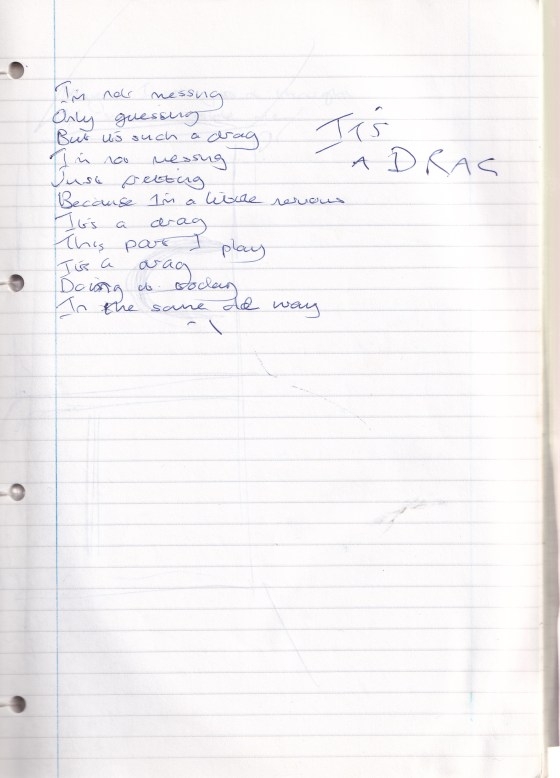 I'm not messing
Only guessing
But it's such a drag
I'm not messing
Just fretting
Because I'm a little nervous
It's a drag
This part I play
It's a drag
Doing it today
In the same old way
It's
A DRAG